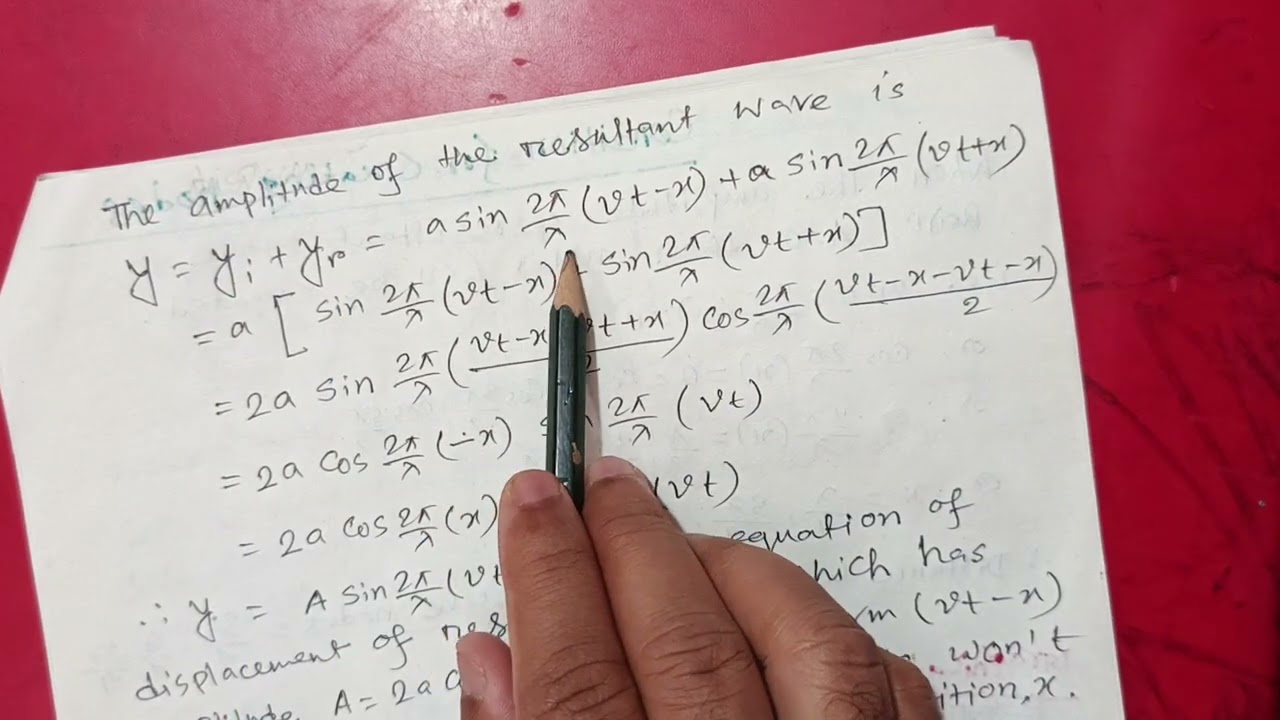 The amplitude of the resultant wave is
y = yᵢ + yᵣ = a sin 2π/λ (vt-x) + a sin 2π/λ (vt+x)
= a [ sin 2π/λ (vt-x) sin 2π/λ (vt+x) ]
= 2a sin 2π/λ ( vt-x vt+x / 2 ) cos 2π/λ ( vt-x-vt-x / 2 )
= 2a cos 2π/λ (-x) 2π/λ (vt)
= 2a cos 2π/λ (x) (vt)
∴ y = A sin 2π/λ (vt equation of
displacement of which has
A = 2a (vt-x)
won't
x.